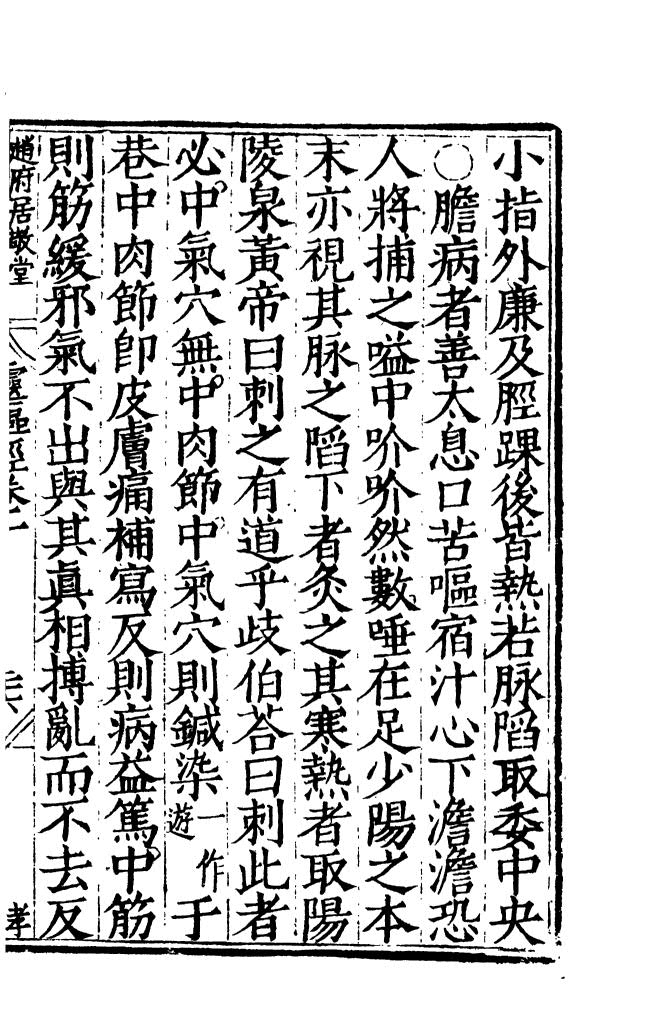 小指外廉及脛踝後皆熱若脉陷取委中央
○膽病者善太息口苦嘔宿汁心下澹澹恐
人將捕之嗌中吤吤然數唾在足少陽之本
末亦視其脉之陷下者灸之其寒熱者取陽
陵泉黃帝曰刺之有道乎歧伯荅曰刺此者
必中氣穴無中肉節中氣穴則鍼染一作遊于
巷中肉節卽皮膚痛補寫反則病益篤中筋
則筋緩邪氣不出與其眞相搏亂而不去反
趙府居敬堂
靈樞經卷二
孝